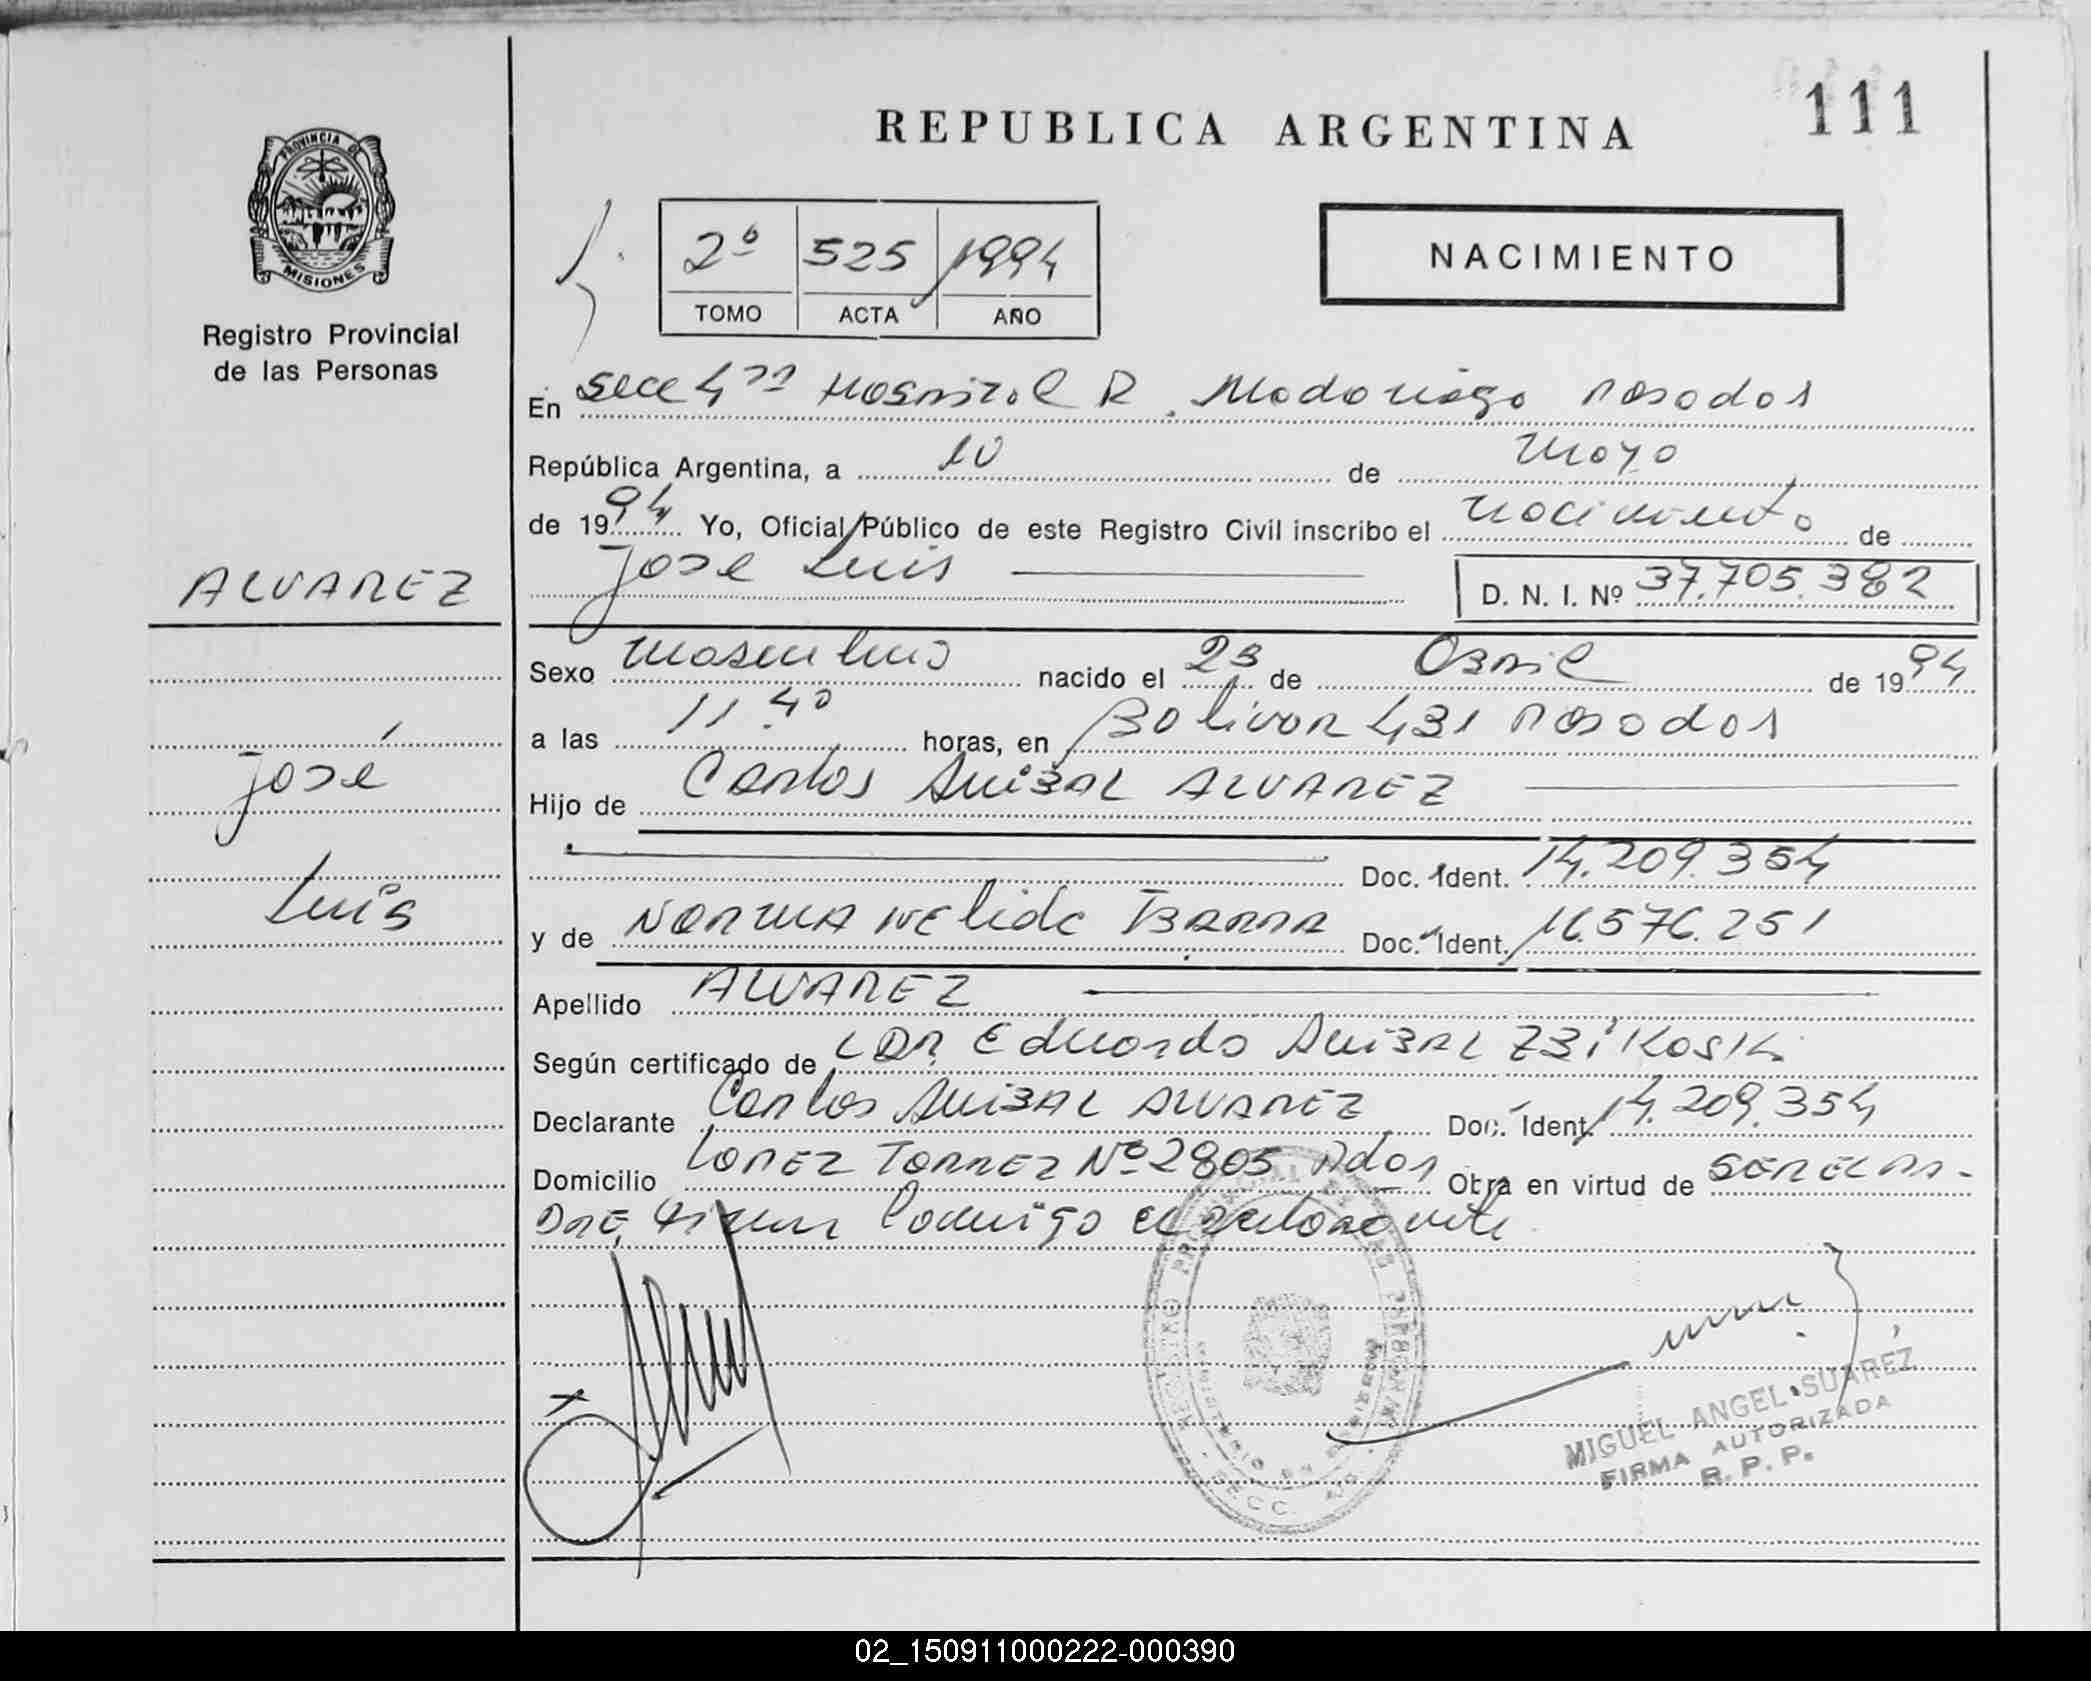 111
REPUBLICA ARGENTINA
PROVINCIA DE MISIONES
Registro Provincial
de las Personas
NACIMIENTO
2º 525 1994
TOMO ACTA AÑO
En Secc 4ta Hospital R. Madariaga Posadas
República Argentina, a 10 de Mayo
de 1994 Yo, Oficial Público de este Registro Civil inscribo el nacimiento de
José Luis D. N. I. Nº 37.705.382
ALVAREZ
José
Luis
Sexo masculino nacido el 23 de Abril de 1994
a las 11.40 horas, en Bolivar 431 Posadas
Hijo de Carlos Anibal ALVAREZ
Doc. Ident. 14.209.354
y de NORMA NELIDA IBARRA Doc. Ident. 16.576.251
Apellido ALVAREZ
Según certificado de Dr. Eduardo Anibal
Declarante Carlos Anibal ALVAREZ Doc. Ident. 14.209.354
Domicilio LOPEZ TORRES Nº 2805 Pdas Obra en virtud de SER EL PA-
DRE, Firma Conmigo el declarante
REGISTRO PROVINCIAL DE LAS PERSONAS
SECC.
MIGUEL ANGEL SUAREZ
FIRMA AUTORIZADA
R. P. P.
02_150911000222-000390